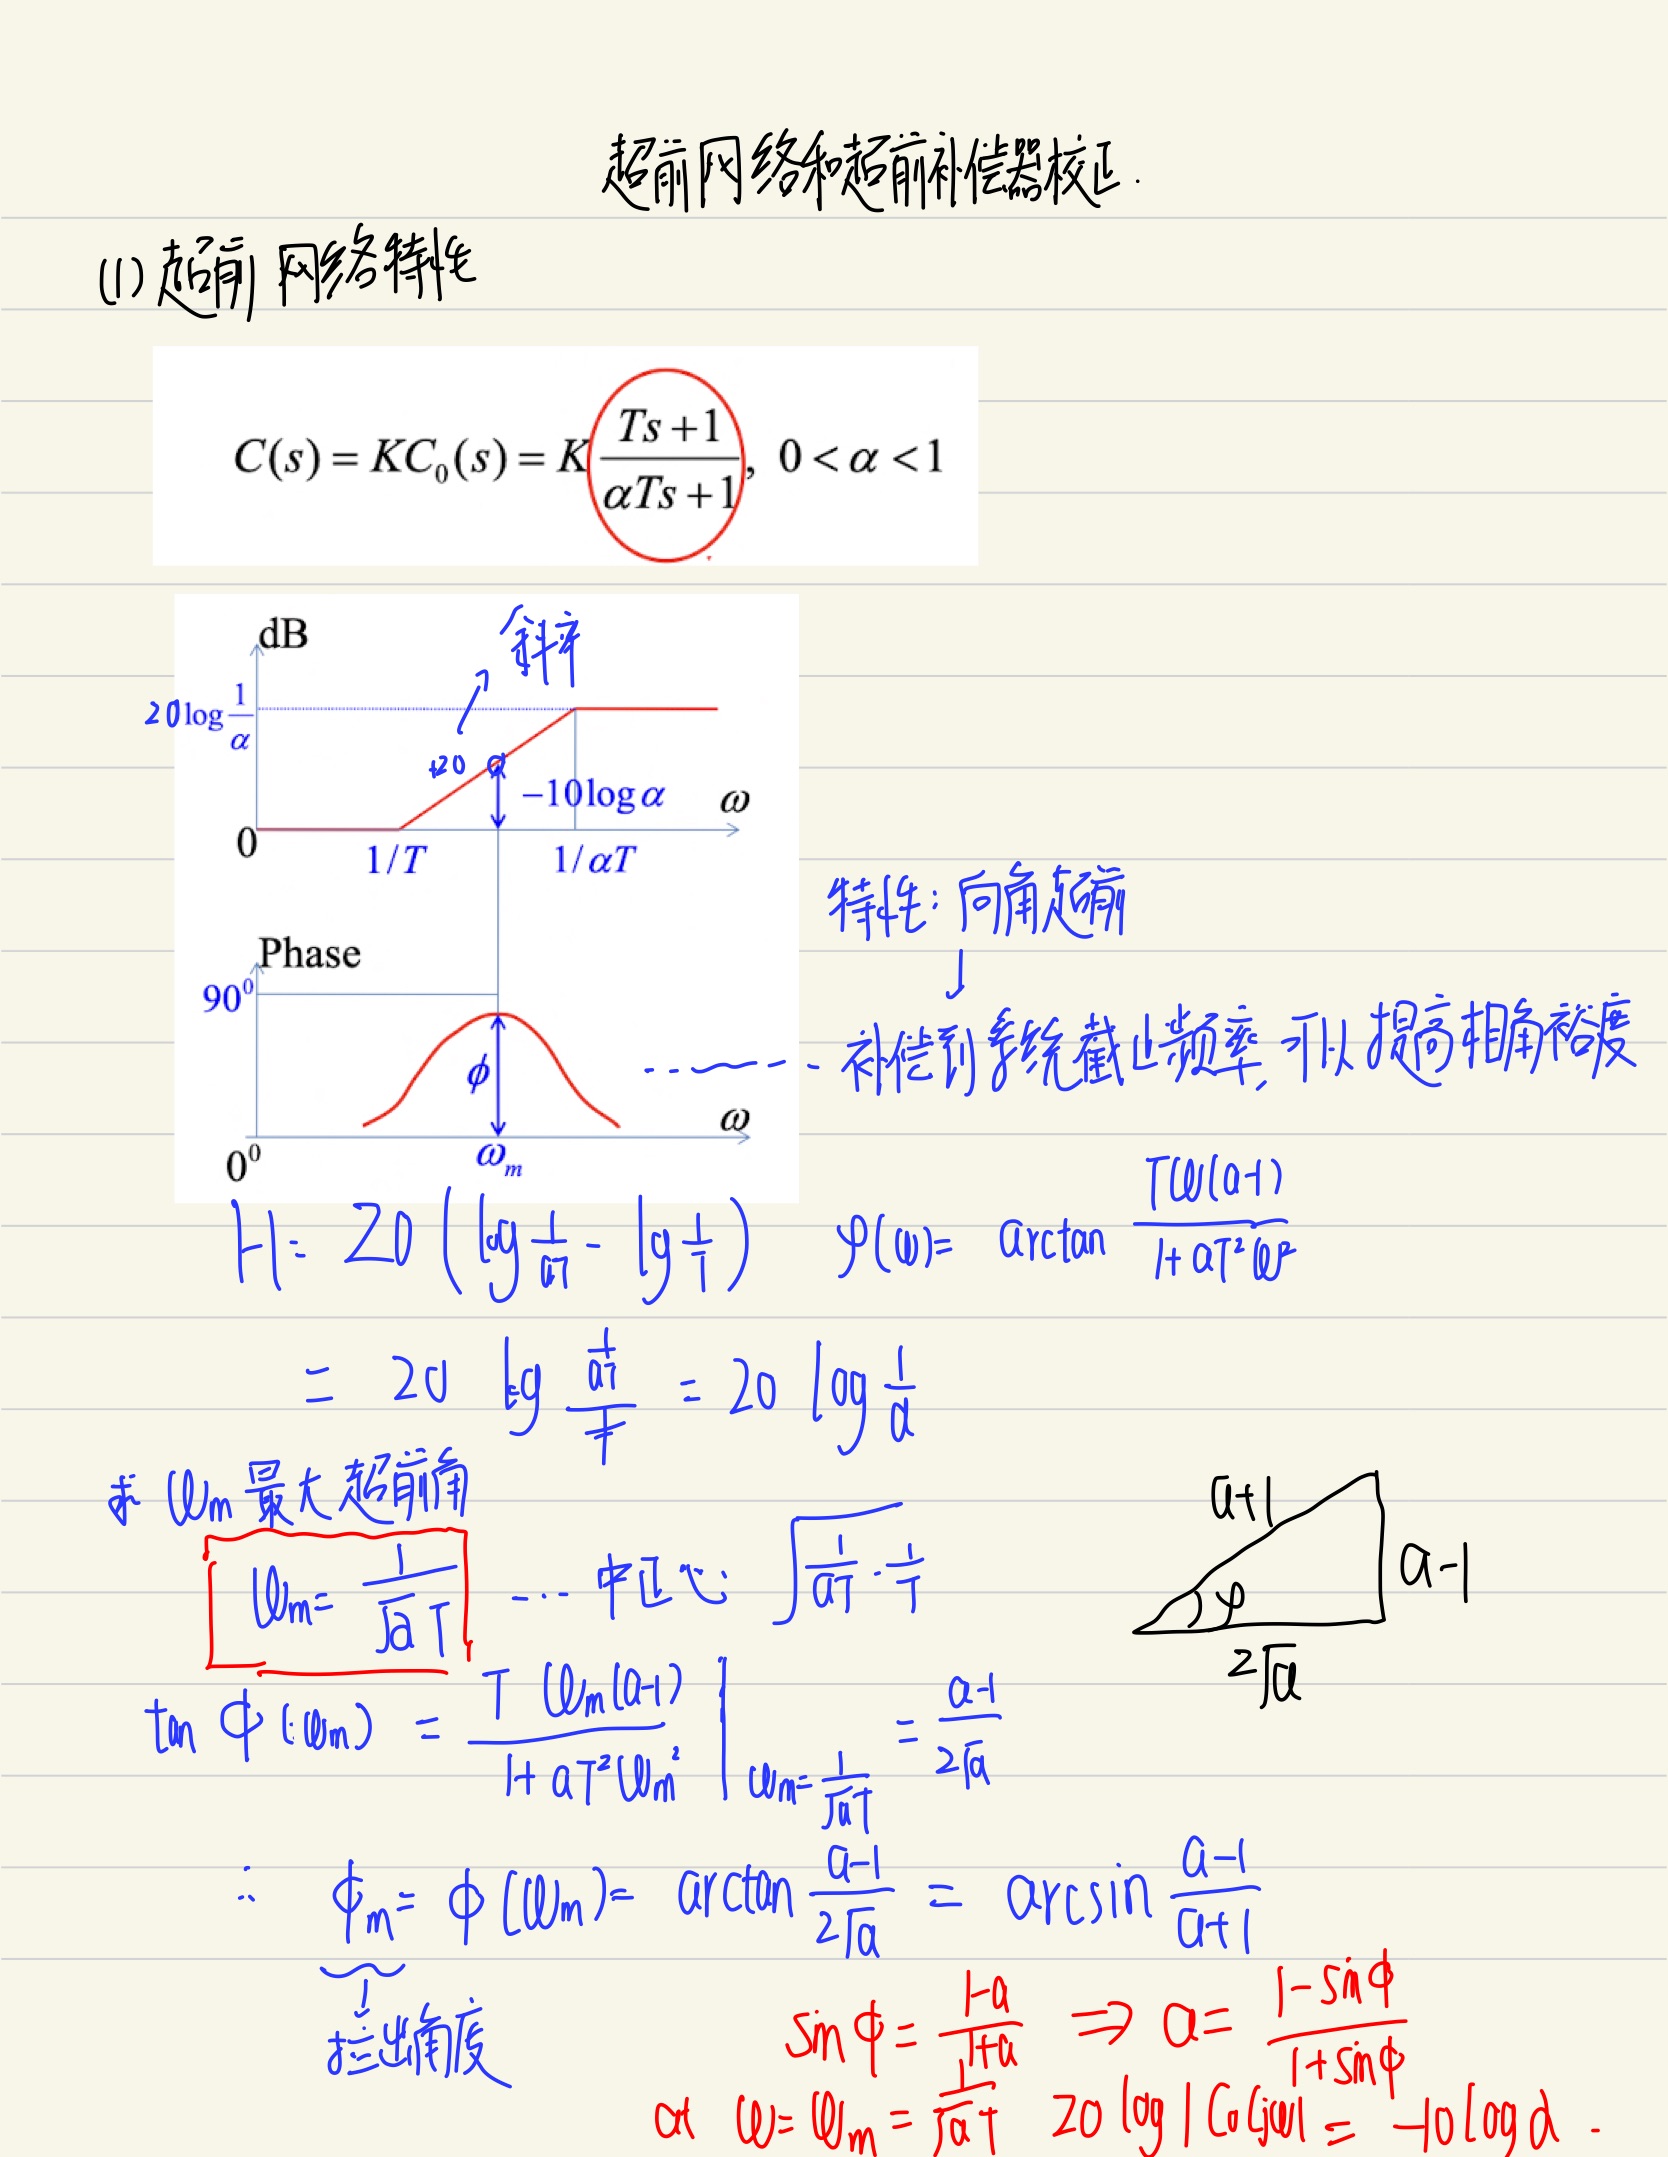 超前网络和超前补偿器校正.
(1) 超前网络特性
C(s) = KC₀(s) = K (Ts+1)/(αTs+1), 0 < α < 1
dB
斜率
20log 1/α
+20
−10logα
ω
0
1/T 1/αT
特性: 向角超前
↓
Phase
90⁰
φ
---~--- 补偿到系统截止频率,可以提高相角裕度
ω
0⁰
ωm
H = 20 (log 1/aT - lg 1/T) φ(ω) = arctan Tω(a-1)/(1+aT²ω²)
= 20 lg (1/aT)/(1/T) = 20 log 1/a
求 ωm 最大超前角
ωm = 1/(√a T) ... 中正心 √(1/aT · 1/T)
a+1
a-1
φ
2√a
tan φ(ωm) = Tωm(a-1)/(1+aT²ωm²) | ωm = 1/(√a T) = (a-1)/(2√a)
∴ φm = φ(ωm) = arctan (a-1)/(2√a) = arcsin (a-1)/(a+1)
出角度
sin φ = (1-a)/(1+a) ⇒ a = (1-sinφ)/(1+sinφ)
at ω = ωm = 1/(√a T) 20 log |C₀(jω)| = -10 log α.